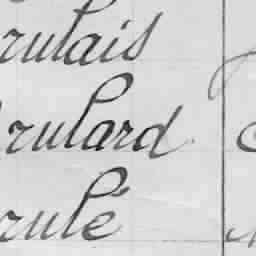 rulais
rulard
rulé